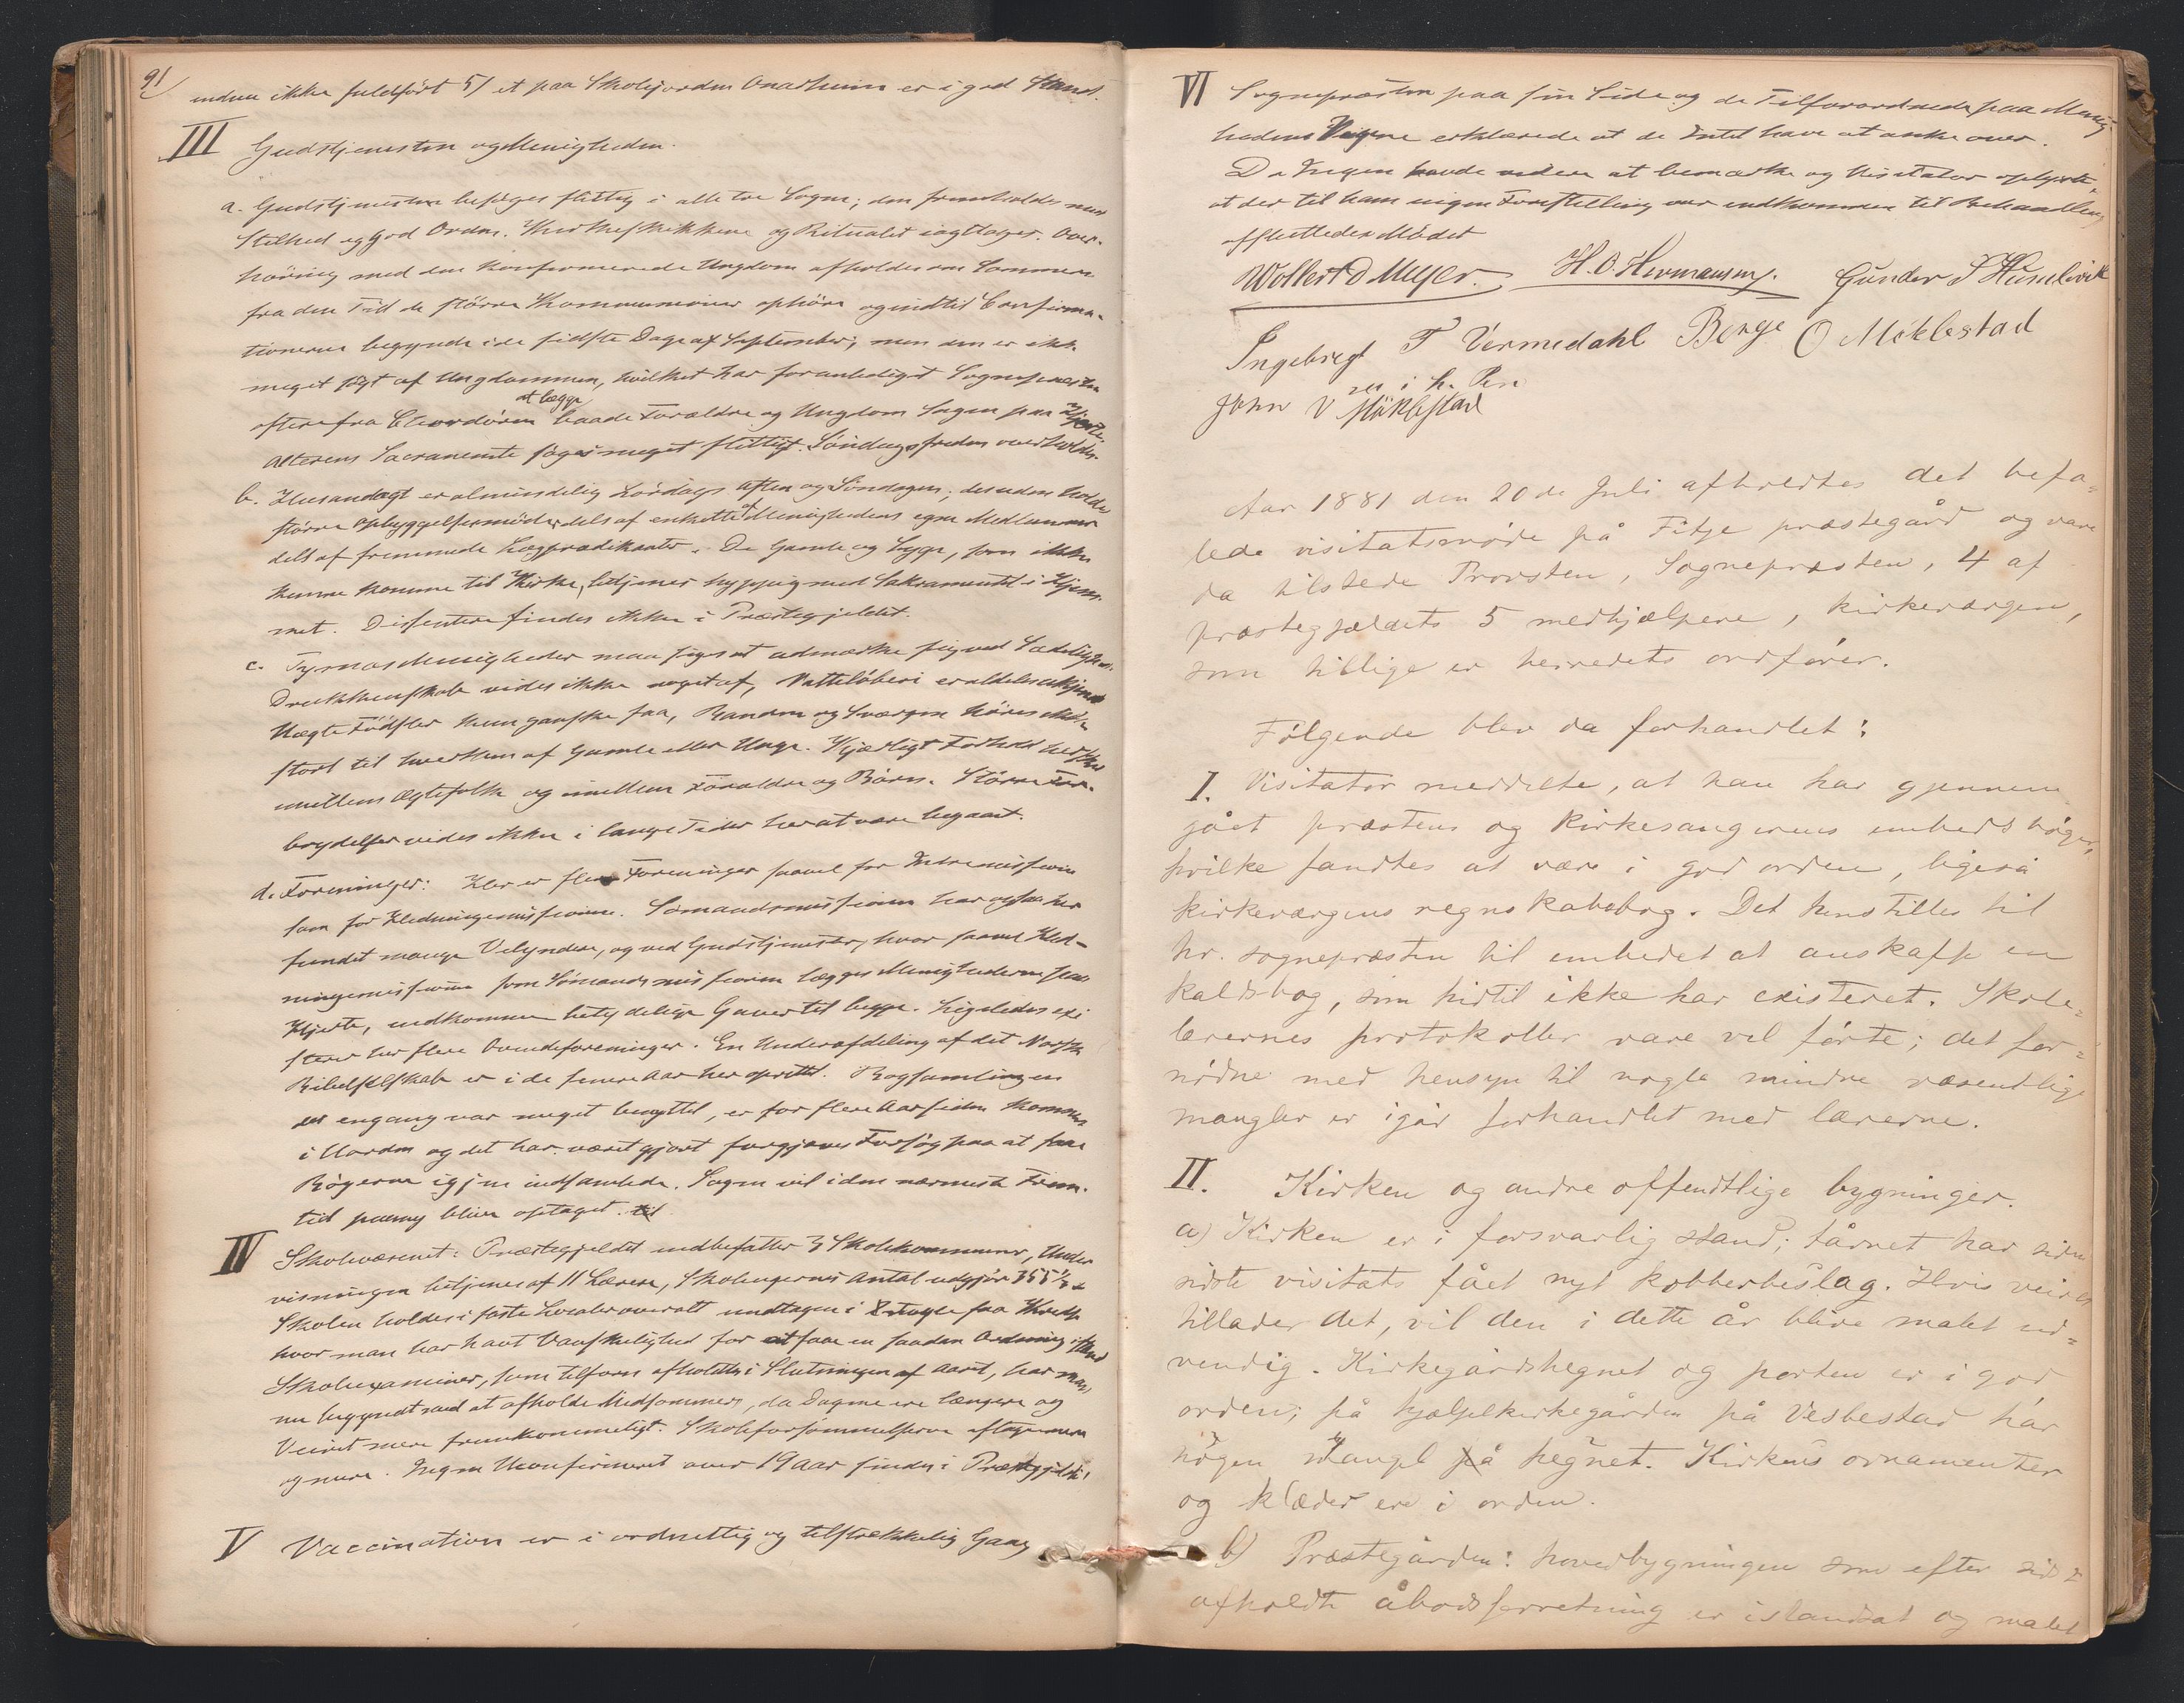 91
endnu ikke fuldført 5/ et paa Skolejorden er i god Stand.
III Gudstjenesten og Menigheden.
a. Gudstjenesten besøges flittig i alle tre Sogne; den fremholdes med
Stilhed og god Orden. Kirkeskikkene og Ritualet iagttages. Over-
høring med den konfirmerede Ungdom afholdes om Sommeren
fra den Tid de større Kommunioner ophøre og indtil Confirma-
tionerne begynde i de sidste Dage af September; men den er ikke
meget søgt af Ungdommen, hvilket har foranlediget Sognepræsten
oftere fra Chordøren at lægge baade Forældre og Ungdom Sagen paa Hjerte.
Alterens Sacramente søges meget flittigt. Søndagsfreden overholdes.
b. Husandagt er almindelig Lørdags Aften og Søndagen; desuden holdes
større Opbyggelsesmøder dels af enkelte af Menighedens egne Medlemmer
dels af fremmede Lægprædikanter. De Gamle og Syge, som ikke
kunne komme til Kirke, betjenes hyppig med Sakramentet i Hjem-
met. Dissentere findes ikke i Præstegjeldet.
c. Menigheder maa siges at udmærke sig ved Sædelighed.
Drukkenskab vides ikke noget af, Natteløberi er aldeles ukjendt
Uægte Fødsler kun ganske faa, Banden og Sværgen høres ikke
stort til hverken af Gamle eller Unge. Kjærligt Forhold hersker
imellem Ægtefolk og imellem Forældre og Børn. Større For-
brydelser vides ikke i lange Tider her at være begaaet.
d. Foreninger: Her er flere Foreninger saavel for Indremissionen
som for Hedningemissionen. Sømandsmissionen har ogsaa her
fundet mange Velyndere, og ved Gudstjenester, hvor saavel Hed-
ningemissionen som Sømandsmissionen lægges Menighederne paa
Hjerte, indkommer betydelige Gaver til begge. Ligeledes exi
sterer her flere Qvindeforeninger. En Underafdeling af det Norske
Bibelselskab er i de senere Aar her oprettet. Bogsamlingen
der engang var meget benyttet, er for flere Aar siden kommen
i Uorden og det har været gjort forgjæves Forsøg paa at faa
Bøgerne igjen indsamlede. Sagen vil i den nærmeste Frem-
tid paany blive optaget.
IV Skolevæsenet: Præstegjeldet indbefatter 3 Skolekommuner, Under
visningen betjenes af 11 Lærere, Skoleugernes Antal udgjør 355½
Skolen holdes i faste Localer overalt undtagen i nogle faa Kredse
hvor man har havt Vanskelighed for at faa en saadan Ordning istand
Skoleexaminer, som tilforn afholdtes i Slutningen af Aaret, har man
nu begyndt med at afholde Midsommers, da Dagene ere længere og
Veiret mere fremkommeligt. Skoleforsømmelserne aftage mere
og mere. Ingen Uconfirmeret over 19 Aar findes i Præstegjeldet.
V Vaccination er i ordentlig og tilstrækkelig Gang
VI Sognepræsten paa sin Side og de Tilforordnede paa Menig
hedens Vegne erklærede at de Intet have at anke over.
Da Ingen havde videre at bemærke og Visitator oplyste,
at der til ham ingen Forestilling var indkommen til Behandling
afsluttedes Mødet
Wollert D Meyer. H. O. Hermansen. Gunder
Ingebregt T Vermedahl Børge O Møklestad
m. i h. Pen
John V Møklestad
Aar 1881 den 20de Juli afholdtes det befa-
lede visitatsmøde på Fitje præstegård og vare
da tilstede Provsten, Sognepræsten, 4 af
præstegjældets 5 medhjælpere, kirkeværgen,
som tillige er herredets ordfører.
Følgende blev da forhandlet:
I. Visitator meddelte, at han har gjennem
gået præstens og kirkesangerens embedsbøger,
hvilke fandtes at være i god orden, ligeså
kirkeværgens regnskabsbog. Det henstilles til
hr. sognepræsten til embedet at anskaffe en
kaldsbog, som hidtil ikke har existeret. Skole-
lærernes protokoller vare vel førte; det for-
nødne med hensyn til nogle mindre væsentlige
mangler er igår forhandlet med lærerne.
II. Kirken og andre offentlige bygninger.
a) Kirken er i forsvarlig stand; tårnet har siden
sidste visitats fået nyt kobberbeslag. Hvis veiret
tillader det, vil den i dette år blive malet ud-
vendig. Kirkegårdshegnet og porten er i god
orden; på hjælpekirkegården på Vesbestad har
nogen mangel på hegnet. Kirkens ornamenter
og klæder ere i orden.
b) Præstegården: hovedbygningen som efter sidst
afholdte åbodsforretning er istandsat og malet